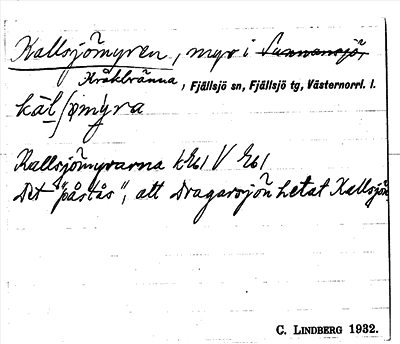 Kallsjömyren, myr i Sunnansjö,
Kråkbränna, Fjällsjö sn, Fjällsjö tg, Västernorrl. l.
käl∫ømyra
Kallsjömyrarna
Det "påstås", att Dragarsjön hetat Kallsjön
C. LINDBERG 1932.